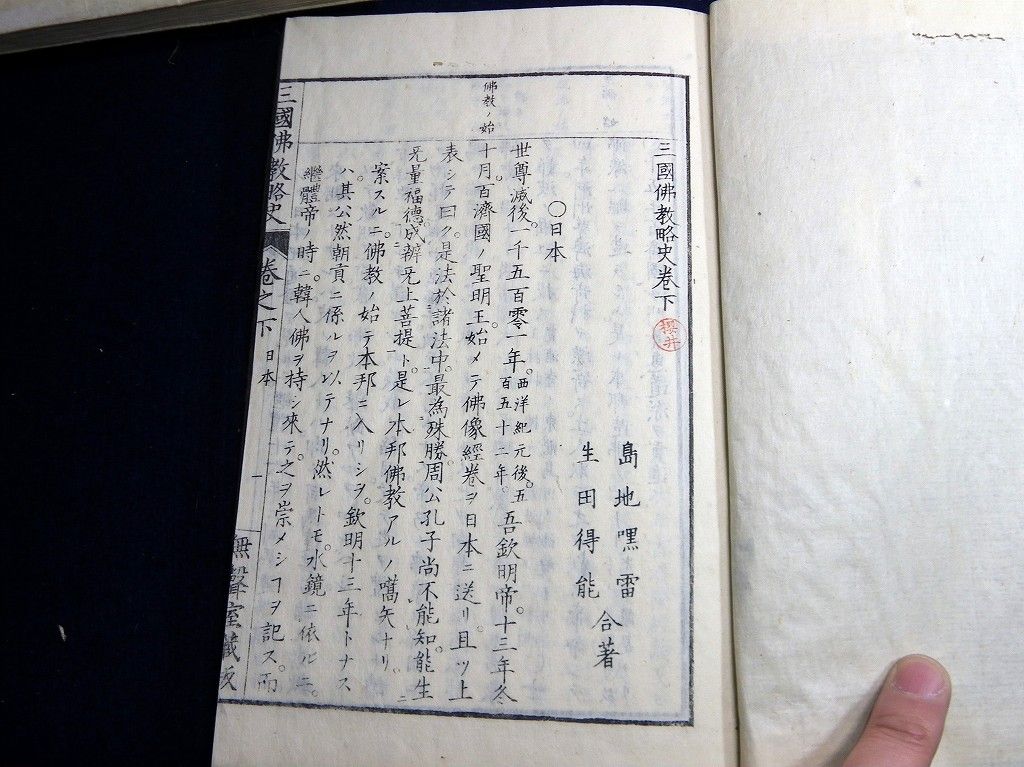 三國佛教略史卷下
櫻井
島地嘿雷
生田得能
合著
〇日本
佛教ノ始
世尊滅後。一千五百零一年。西洋紀元後。五百五十二年。吾欽明帝。十三年冬
十月。百濟國ノ聖明王。始メテ佛像經卷ヲ日本ニ送リ。且ツ上
表シテ曰ク。是法於諸法中。最為殊勝。周公孔子尚不能知。能生
无量福德。成辨无上菩提ト。是レ本邦佛教アルノ嚆矢ナリ。
案スルニ。佛教ノ始テ本邦ニ入リシヲ。欽明十三年トナス
ハ。其公然朝貢ニ係ルヲ以テナリ。然レトモ。水鏡ニ依ルニ。
繼體帝ノ時ニ。韓人佛ヲ持シ來テ。之ヲ崇メシヿヲ記ス。而
三國佛教略史 卷之下 日本 一 無聲室藏版